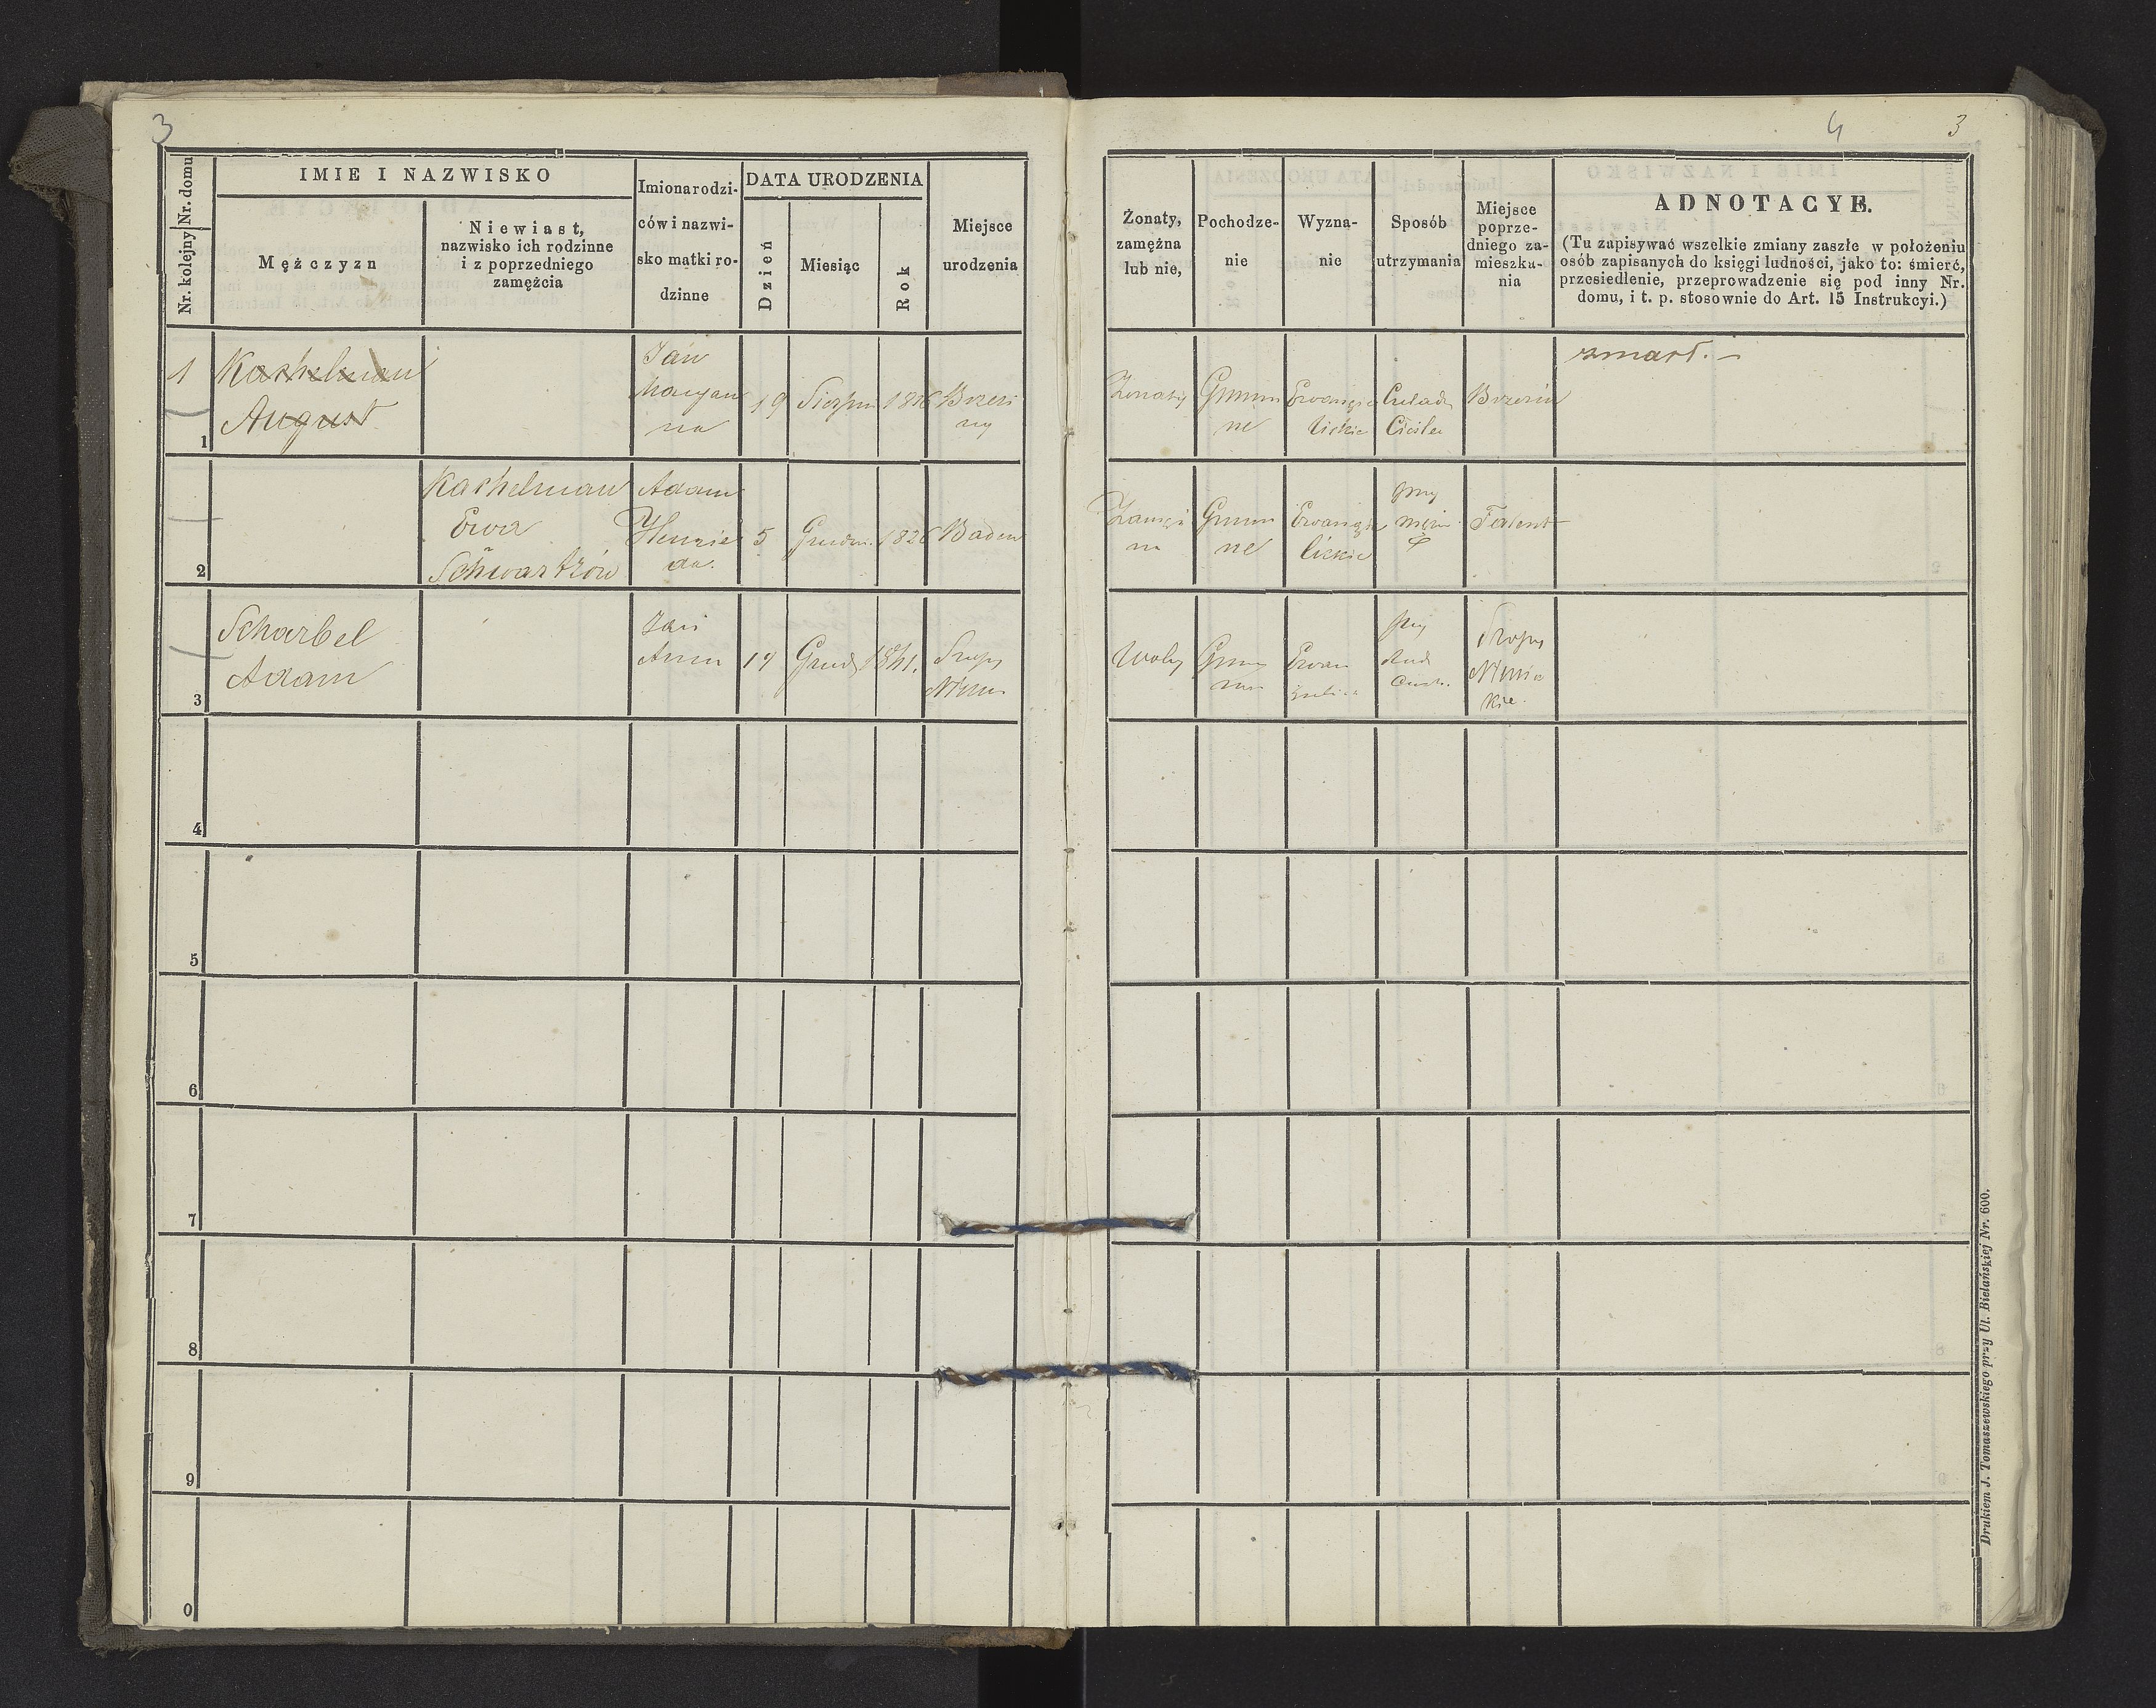 3
Nr. domu
Nr. kolejny
IMIE I NAZWISKO
Mężczyzn
Niewiast,
nazwisko ich rodzinne
i z poprzedniego
zamężcia
Imiona rodzi-
ców i nazwi-
sko matki ro-
dzinne
DATA URODZENIA
Dzień
Miesiąc
Rok
Miejsce
urodzenia
1
1
Kachelman
August
Jan
Maryan
na
19
Sierpn
Brzezi
ny
2
Kachelman
Ewa
Schwartzów
Adam
5
1826
Baden
3
Scharbel
Adam
Jan
Anna
Grud
1841.
4
5
6
7
8
9
0
4
3
Żonaty,
zamężna
lub nie,
Pochodze-
nie
Wyzna-
nie
Sposób
utrzymania
Miejsce
poprze-
dniego za-
mieszka-
nia
ADNOTACYE.
(Tu zapisywać wszelkie zmiany zaszłe w położeniu
osób zapisanych do księgi ludności, jako to: śmierć,
przesiedlenie, przeprowadzenie się pod inny Nr.
domu, i t. p. stosownie do Art. 15 Instrukcyi.)
Żonaty
Gmin
ne
Ewangie
lickie
Czeladn
Cieśla
Brzezin
zmarł. –
Zamęż
na
Gmin
ne
Ewangie
lickie
przy
mężu
Wolny
przy
kie.
Drukiem J. Tomaszewskiego przy Ul. Bielańskiej Nr. 600.